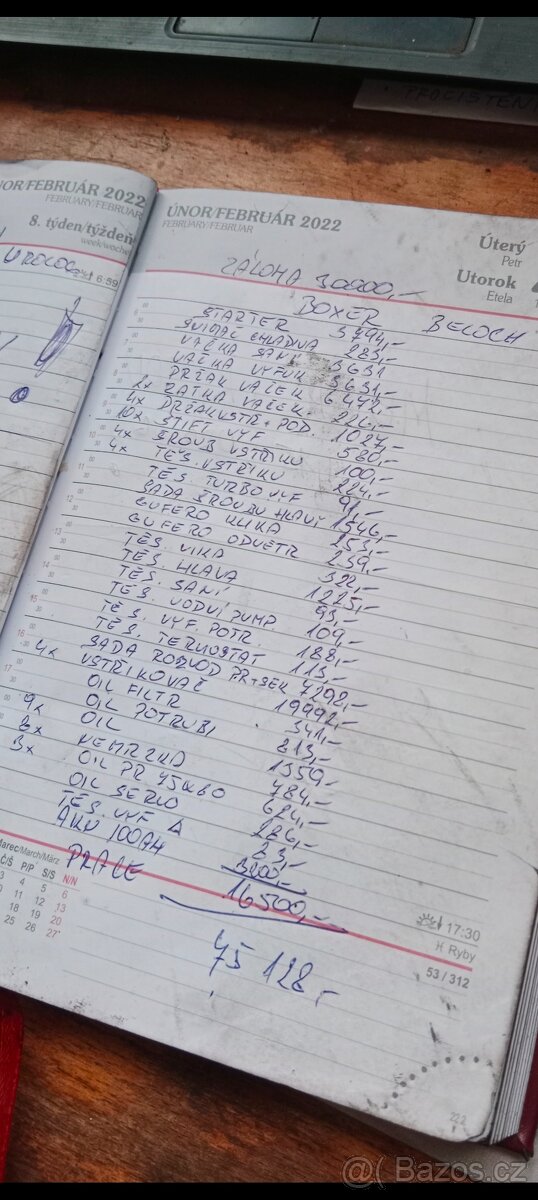 PROČISTĚN
NOR/FEBRUÁR 2022
FEBRUARY/FEBRUAR
8. týden/týždeň
week/woche
6:59
ÚNOR/FEBRUÁR 2022
FEBRUARY/FEBRUAR
Úterý
Petr
Utorok
Etela
ZÁLOHA 30000,-
BOXER BELOCH
STARTER 3794,-
SNÍMAČ CHLADIVA 283,-
VAČKA SÁNÍ 3631
VAČKA VÝFUK 3631,-
DRŽAK VAČEK 6472,-
2x ZÁTKA VAČEK 226,-
4x DRŽAKVSTŘ+POD. 1027,-
10x ŠTIFT VÝF 580,-
4x ŠROUB VSTŘIKU 100,-
4x TĚS. VSTŘIKU 224,-
TĚS TURBO VÝF 91,-
SADA ŠROUBU HLAVY 1546,-
GUFERO KLIKA 253,-
GUFERO ODVĚTR 239,-
TĚS. VIKA 322,-
TĚS. HLAVA 1225,-
TĚS. SÁNÍ 93,-
TĚS. VODNÍ PUMP. 109,-
TĚS. VÝF. POTR. 188,-
TĚS. TERMOSTAT 113,-
SADA ROZVOD PR+SEK 7292,-
4x VSTŘIKOVAČ 19992,-
OIL FILTR 341,-
OIL POTRUBI 813,-
9x OIL 1359,-
2x NEMRZKA 484,-
3x OIL PR 75W80 624,-
OIL SERVO 286,-
TĚS. VÝF Δ 23,-
AKU 100A4 3200,-
PRÁCE 16500,-
75 128,-
Marec/March/März
Č/Š P/P S/S N/N
3 4 5 6
10 11 12 13
18 19 20
25 26 27
17:30
Ryby
53 / 312
222
@ Bazos.cz